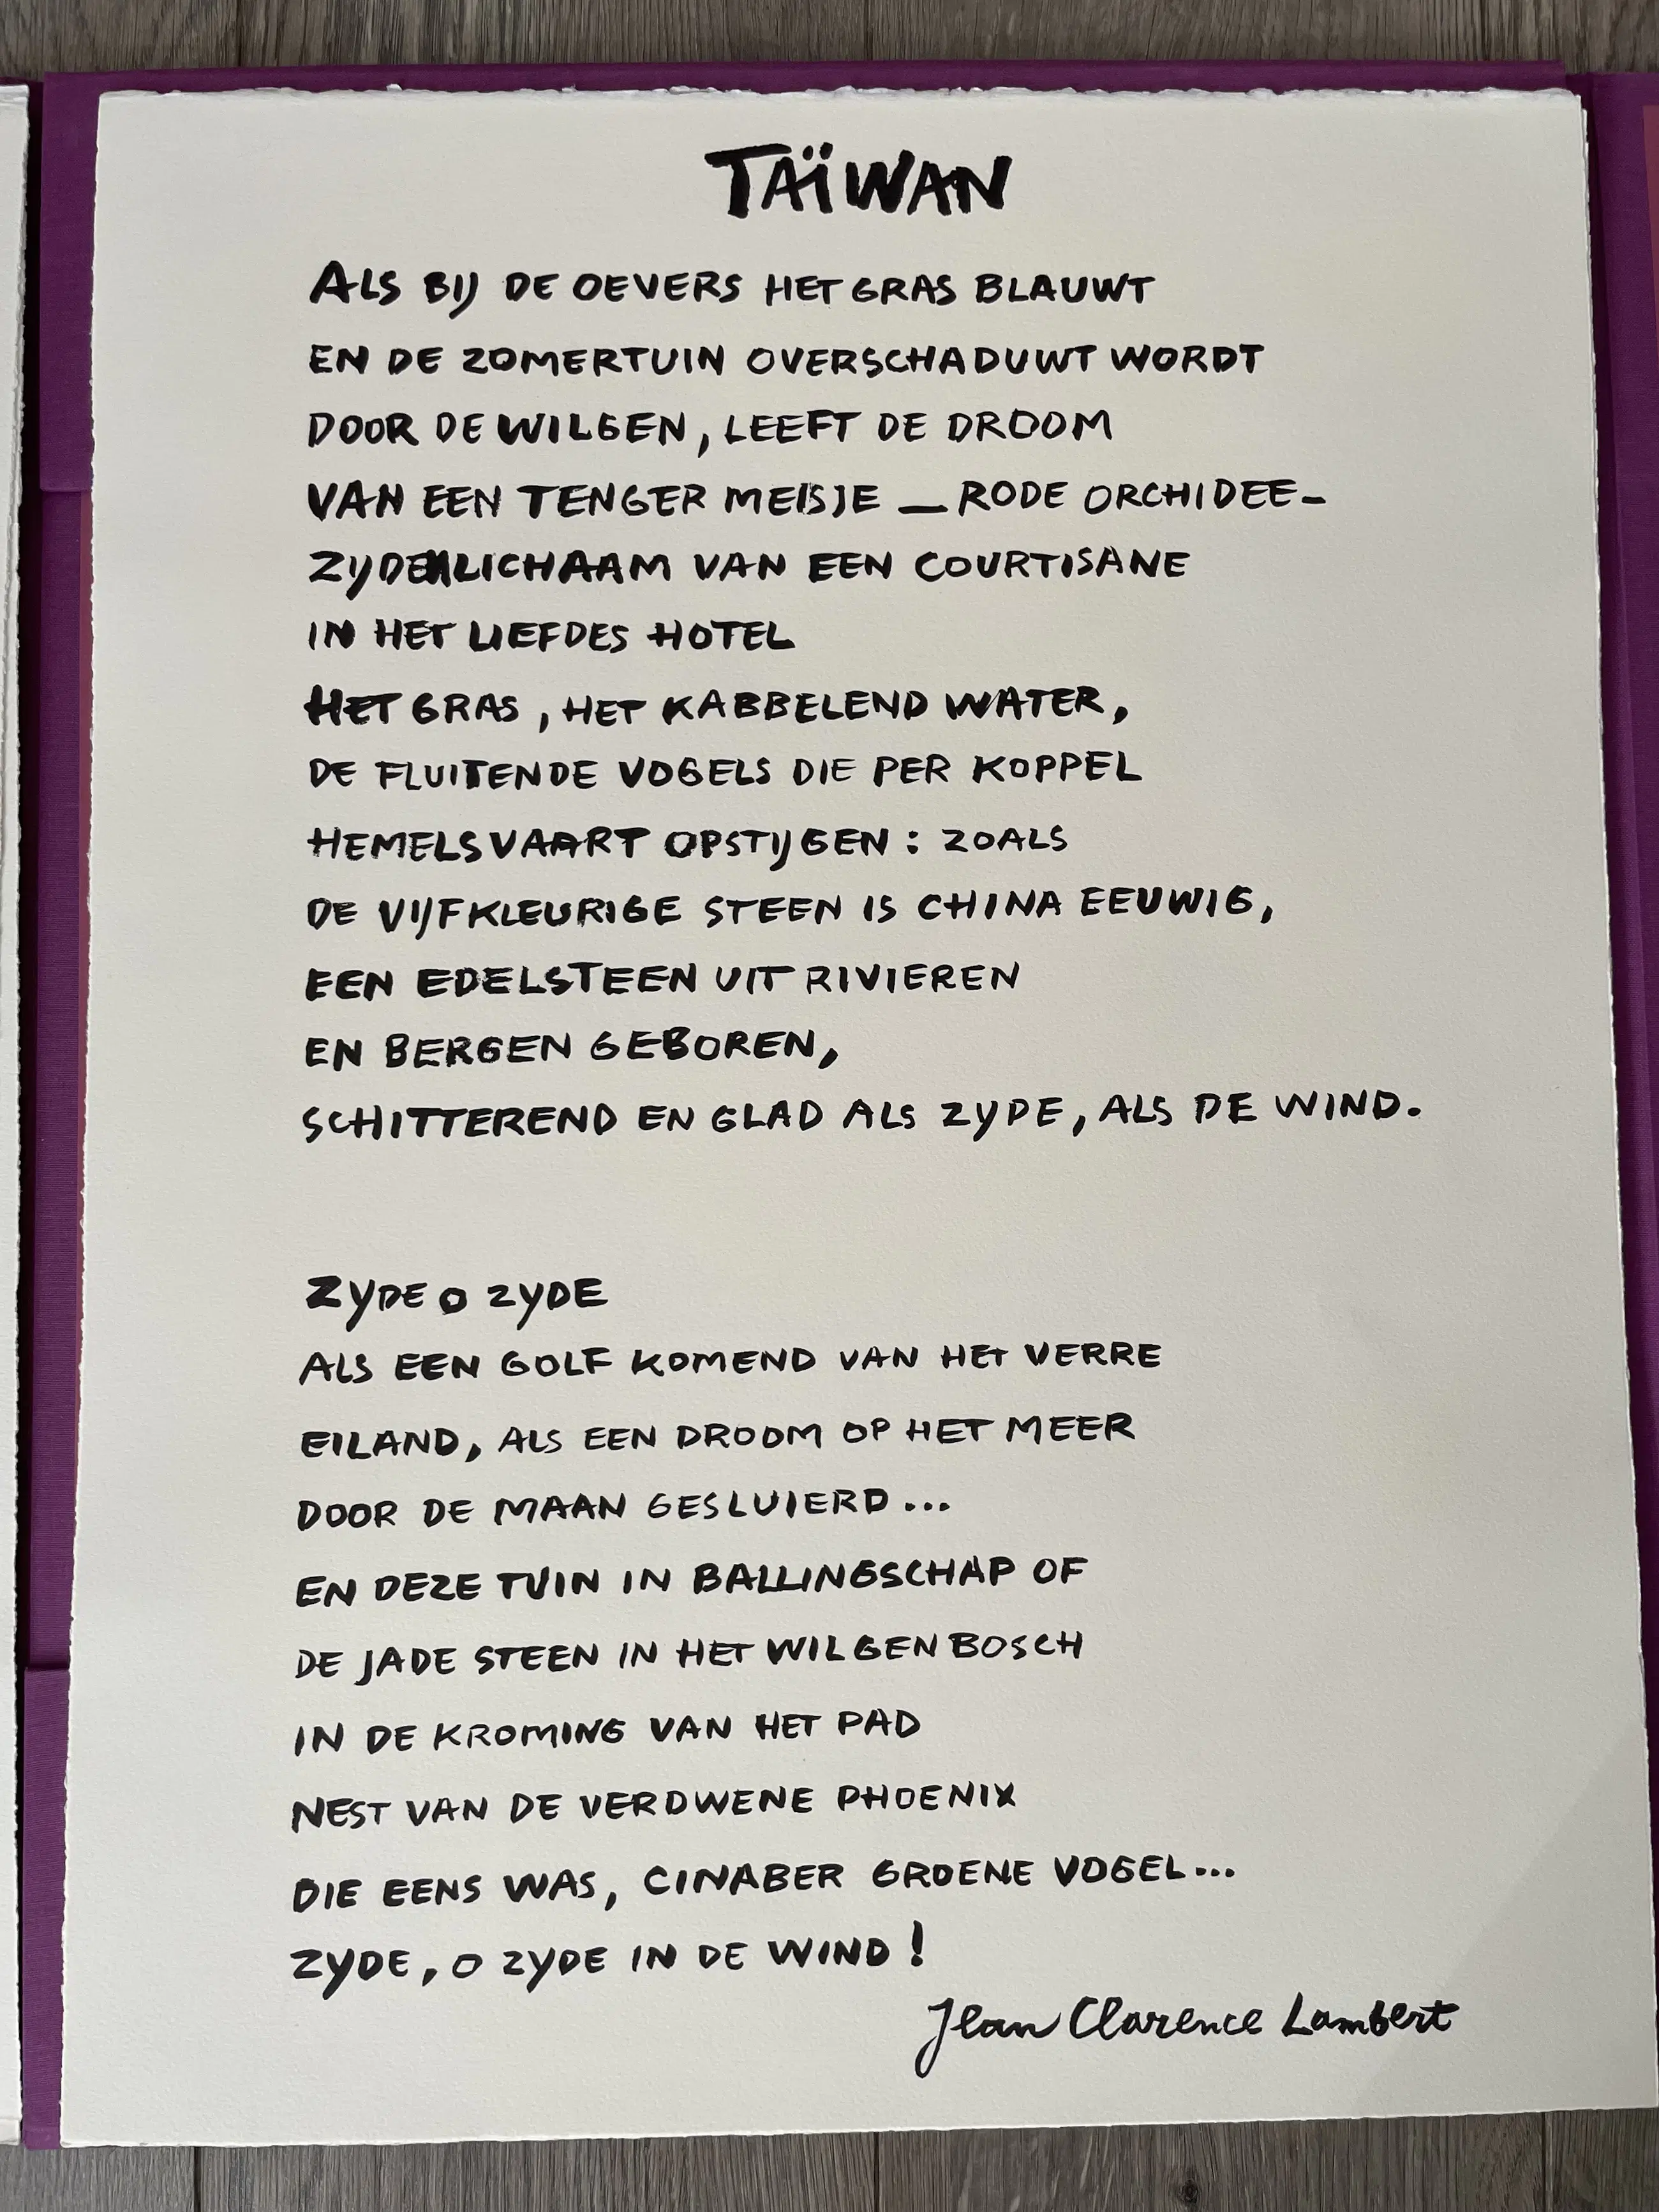 TAÏWAN
ALS BIJ DE OEVERS HET GRAS BLAUWT
EN DE ZOMERTUIN OVERSCHADUWT WORDT
DOOR DE WILGEN, LEEFT DE DROOM
VAN EEN TENGER MEISJE _ RODE ORCHIDEE -
ZIJDEN LICHAAM VAN EEN COURTISANE
IN HET LIEFDES HOTEL
HET GRAS, HET KABBELEND WATER,
DE FLUITENDE VOGELS DIE PER KOPPEL
HEMELSVAART OPSTIJGEN: ZOALS
DE VIJFKLEURIGE STEEN IS CHINA EEUWIG,
EEN EDELSTEEN UIT RIVIEREN
EN BERGEN GEBOREN,
SCHITTEREND EN GLAD ALS ZYDE, ALS DE WIND.
ZYDE O ZYDE
ALS EEN GOLF KOMEND VAN HET VERRE
EILAND, ALS EEN DROOM OP HET MEER
DOOR DE MAAN GESLUIERD...
EN DEZE TUIN IN BALLINGSCHAP OF
DE JADE STEEN IN HET WILGENBOSCH
IN DE KROMING VAN HET PAD
NEST VAN DE VERDWENE PHOENIX
DIE EENS WAS, CINABER GROENE VOGEL...
ZYDE, O ZYDE IN DE WIND!
Jean Clarence Lambert